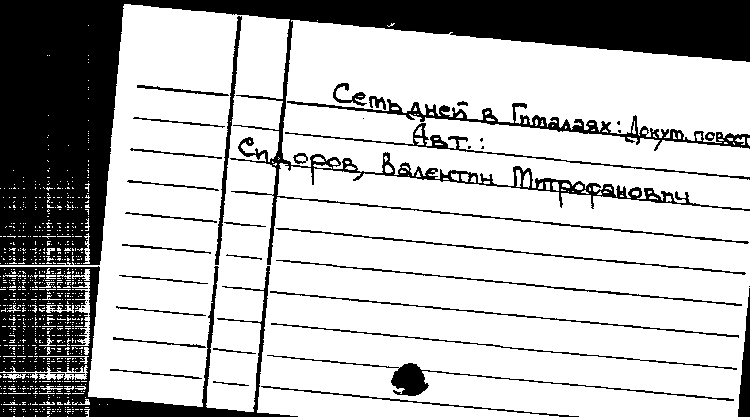 Семь дней в Гималаях: Докум. повест
Авт.:
Сидоров, Валентин Митрофанович